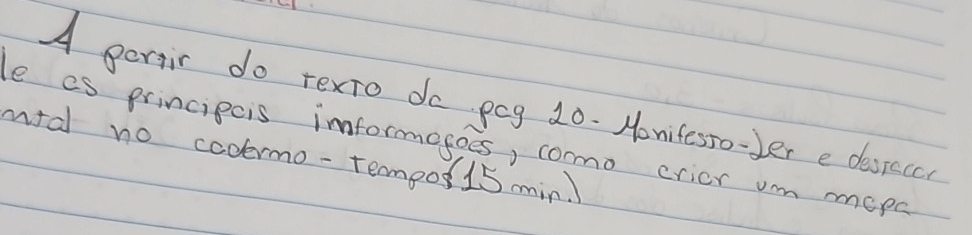 A partir do texto da pag 10. Manifesto-Ler e destacar
le as principais imformações, como criar um mapa
ntal no caderno - tempo (15 min.)